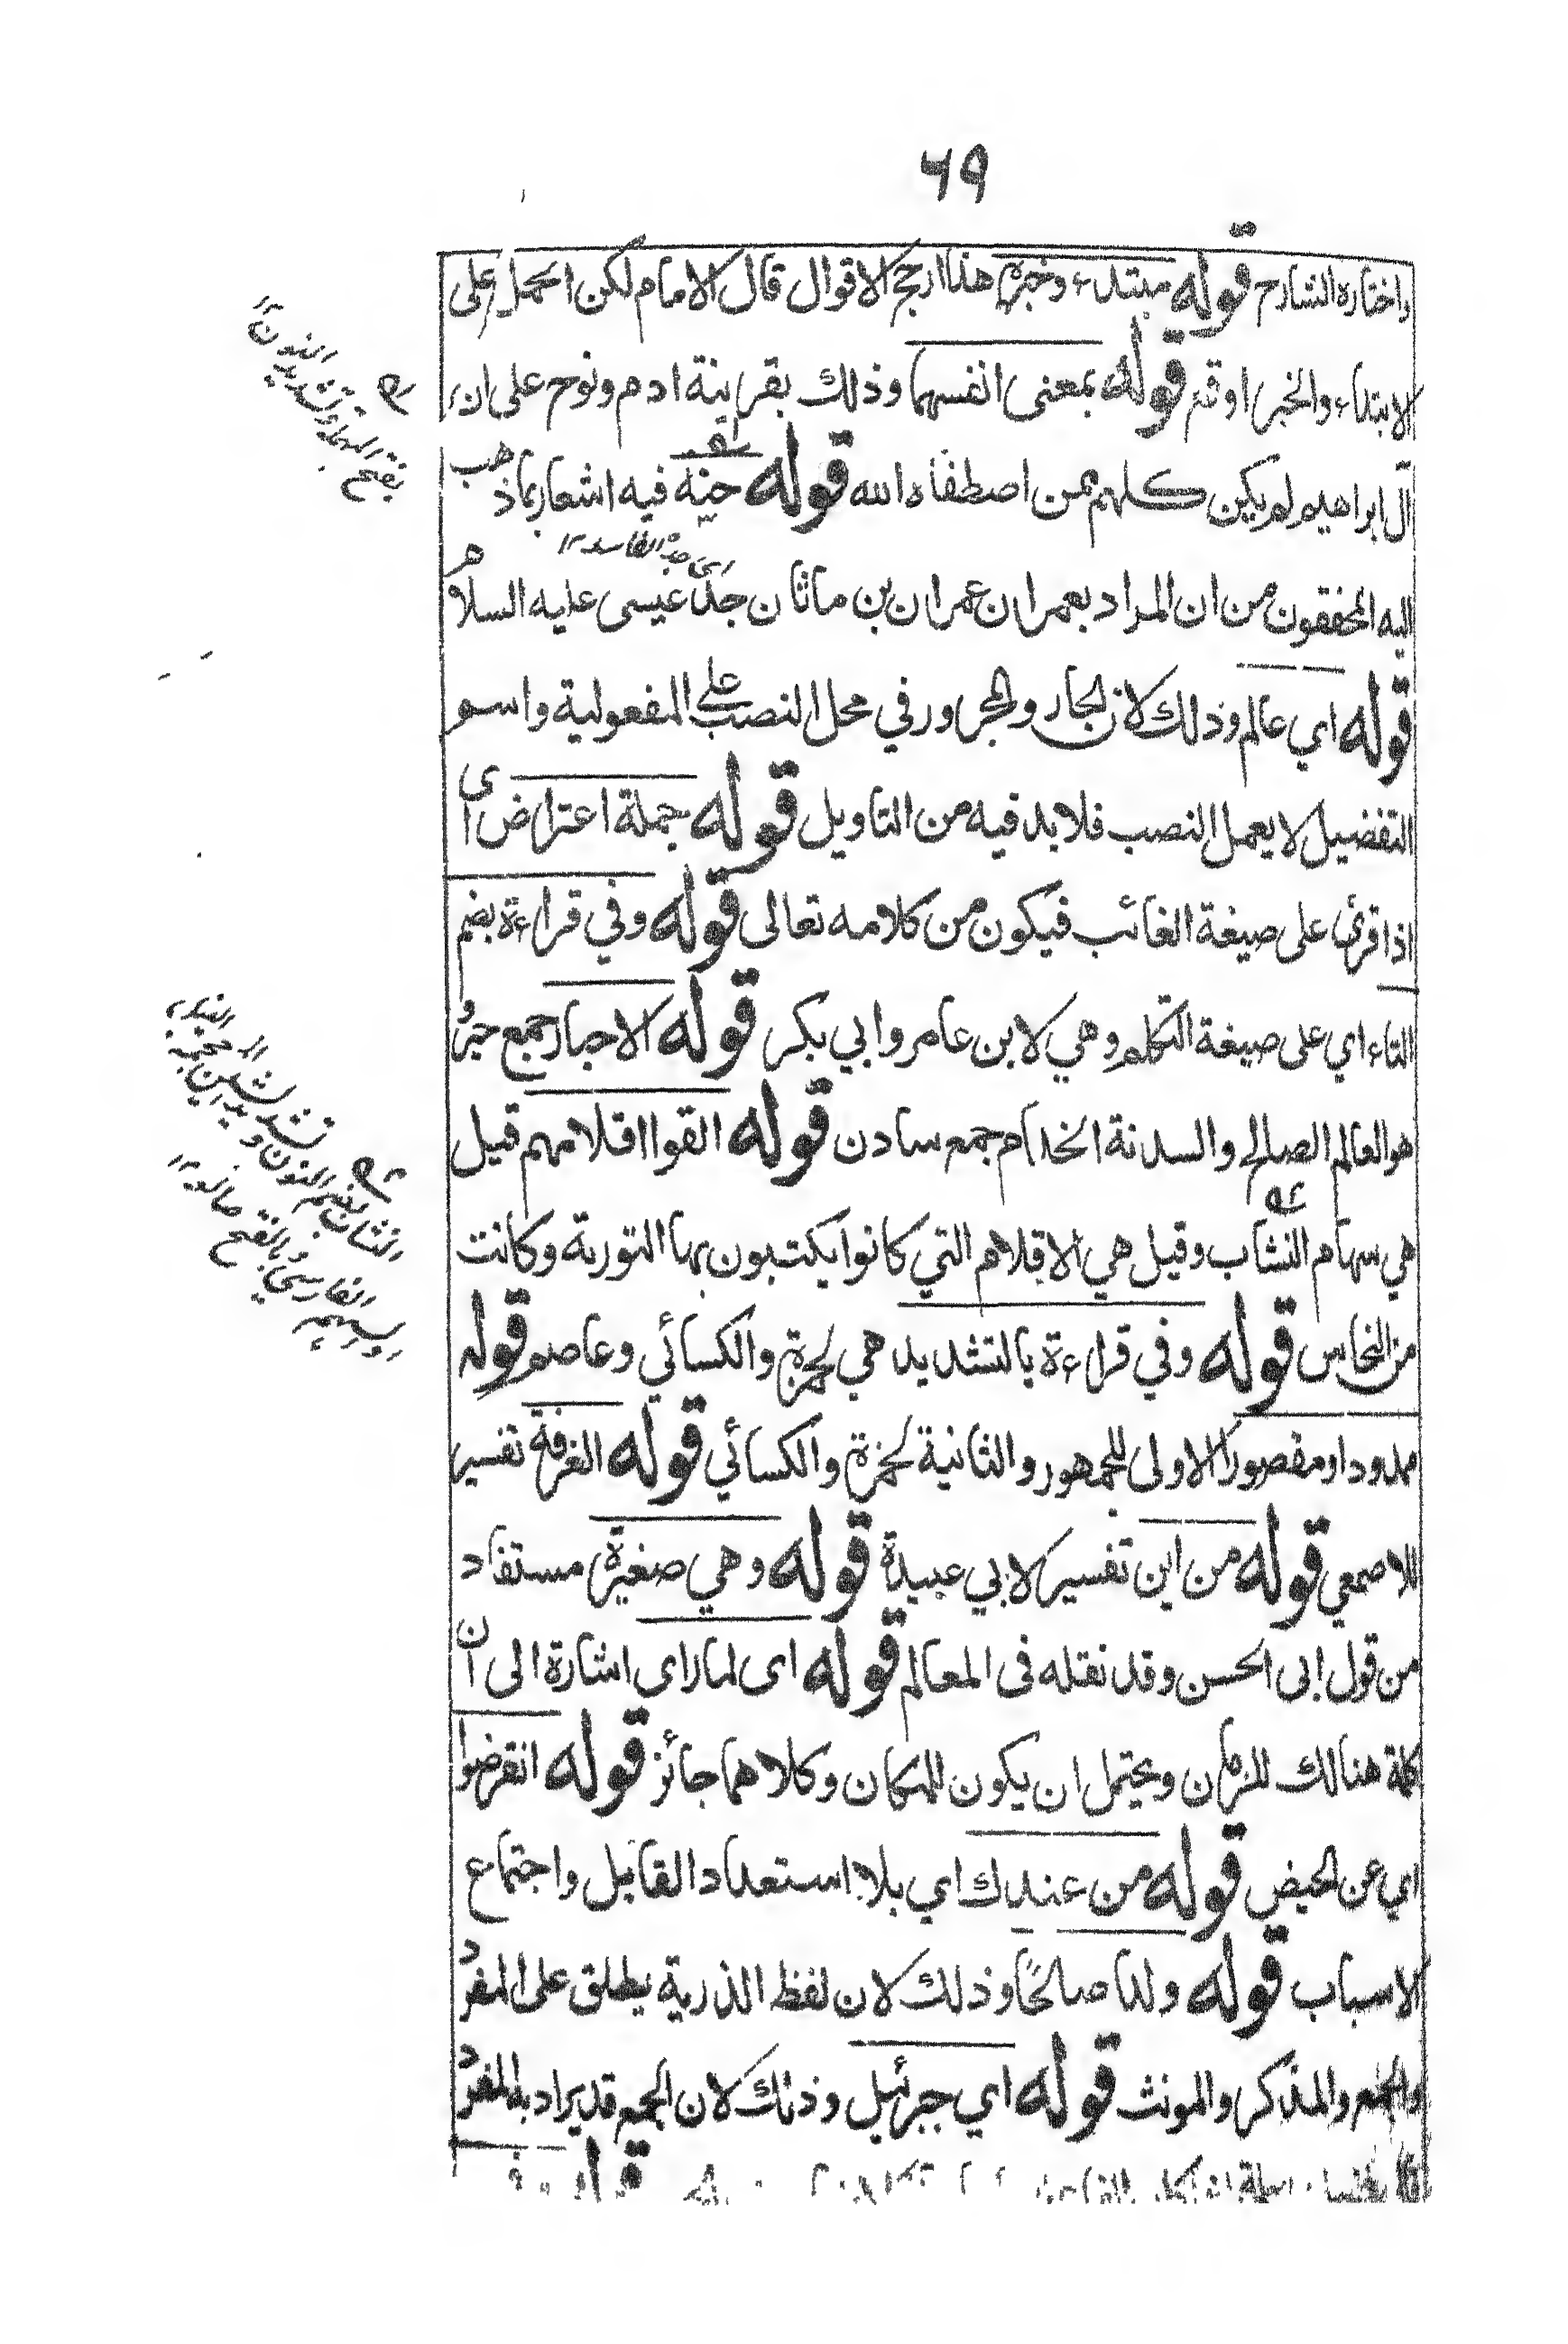 ٦٩
واختاره الشارح قوله مبتدء وخبره هذا ارجح الاقوال قال الامام لكن الحمل على
الابتداء والخبر اوقع قوله بمعنى انفسهما وذلك بقرينة ادم ونوح على ان
آل ابراهيم لم يكن كلهم ممن اصطفاه الله قوله حنة فيه اشعار بماذهب
اى جده الفاسد ١٢
اليه المحققون من ان المراد بعمران عمران بن ماثان جد عيسى عليه السلام
قوله اي عالم وذلك لان الجار والمجرور في محل النصب على المفعولية واسم
التفضيل لا يعمل النصب فلابد فيه من التاويل قوله جملة اعتراض اى
اذا قرئ على صيغة الغائب فيكون من كلامه تعالى قوله وفي قراءة بضم
التاء اي على صيغة التكلم وهي لابن عامر وابي بكر قوله الاحبار جمع حبر
هو العالم الصالح والسدنة الخدام جمع سادن قوله القوا اقلامهم قيل
هي سهام النشاب وقيل هي الاقلام التي كانوا يكتبون بها التورية وكانت
من النحاس قوله وفي قراءة بالتشديد هي لحمزة والكسائي وعاصم قوله
ممدودا ومقصورا الاولى للجمهور والثانية لحمزة والكسائي قوله الغرفة تفسير
للاصمعي قوله من اين تفسير لابي عبيدة قوله وهي صغيرة مستفاد
من قول ابى الحسن وقد نقله فى المعالم قوله اى لما راى اشارة الى ان
كلمة هنالك للزمان ويحتمل ان يكون للمكان وكلاهما جائز قوله انقرضوا
اي عن الحيض قوله من عندك اي بلا استعداد القابل واجتماع
الاسباب قوله ولدا صالحًا وذلك لان لفظ الذرية يطلق على المفرد
والجمع والمذكر والمونث قوله اي جبرئيل وذلك لان الجمع قد يراد به المفرد
بفتح المهملة وتشديد النون ١٢
النشاب بضم النون وتشديد الشين المعجمة